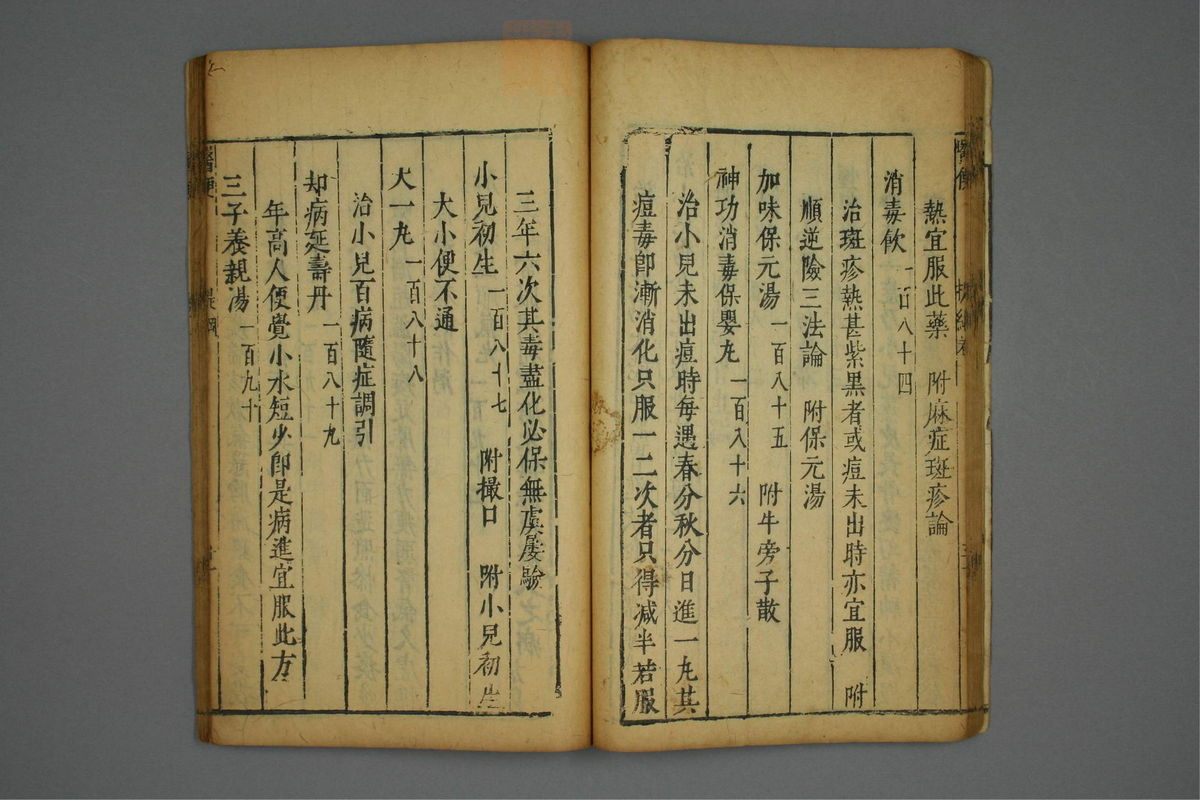 熱宜服此藥　附麻症斑疹論
消毒飲　一百八十四
治斑疹熱甚紫黑者或痘未出時亦宜服　附
順逆險三法論　附保元湯
加味保元湯　一百八十五　附牛旁子散
神功消毒保嬰丸　一百八十六
治小兒未出痘時每遇春分秋分日進一丸其
痘毒卽漸消化只服一二次者只得减半若服
三年六次其毒盡化必保無虞屡驗
小兒初生　一百八十七　附撮口　附小兒初生
大小便不通
大一丸　一百八十八
治小兒百病隨症調引
却病延壽丹　一百八十九
年高人便覺小水短少卽是病進宜服此方
三子養親湯　一百九十
醫便